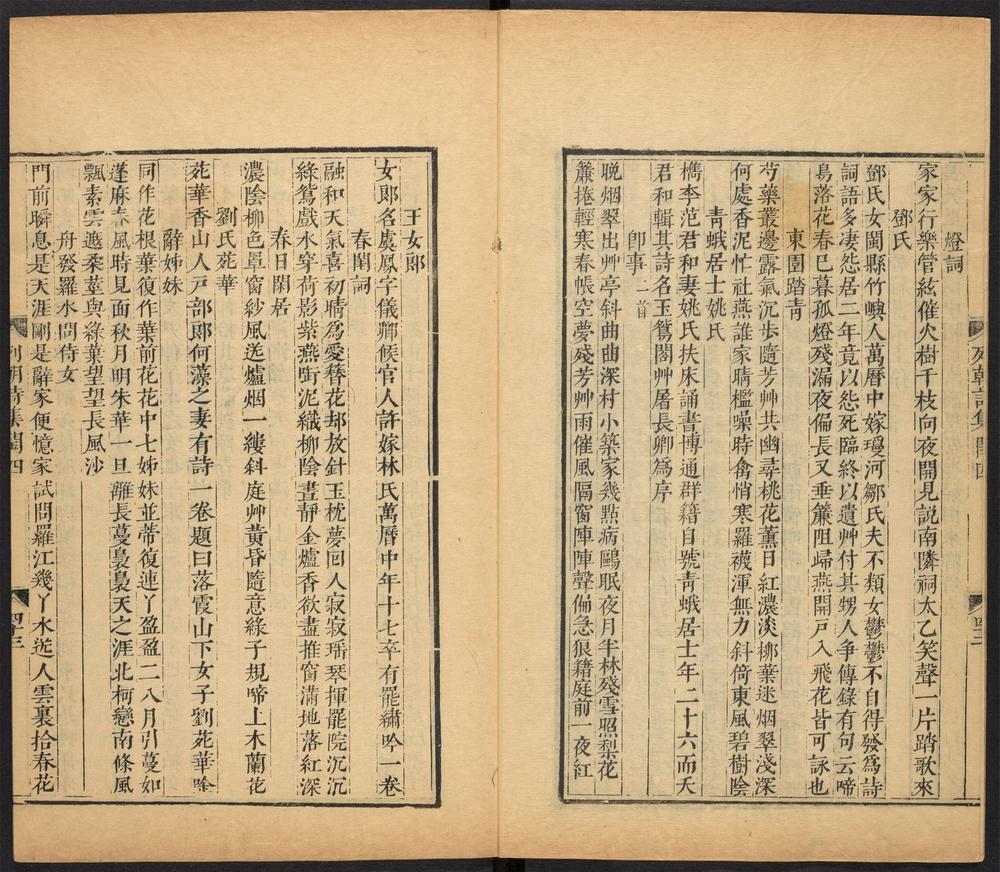 燈詞
家家行樂管絃催火樹千枝向夜開見説南隣祠太乙笑聲一片踏歌來
鄧氏
鄧氏女閩縣竹嶼人萬曆中嫁瓊河鄒氏夫不類女鬱鬱不自得發爲詩
詞語多凄怨居二年竟以怨死臨終以遺艸付其甥人争傳錄有句云啼
鳥落花春已暮孤燈殘漏夜偏長又垂簾阻歸燕開戸入飛花皆可詠也
東園踏青
芍藥叢邊露氣沉步隨芳艸共幽尋桃花薰日紅濃淡栁葉迷烟翠淺深
何處香泥忙社燕誰家晴檻噪時禽悄寒羅襪渾無力斜倚東風碧樹陰
青蛾居士姚氏
檇李范君和妻姚氏扶床誦書博通群籍自號青蛾居士年二十六而夭
君和輯其詩名玉鴛閣艸屠長卿爲序
卽事二首
晩烟翠出艸亭斜曲曲深村小築家幾點病鷗眠夜月半林殘雪照梨花
簾捲輕寒春帳空夢殘芳艸雨催風隔窗陣陣聲偏急狼籍庭前一夜紅
列朝詩集閏四
四十三
王女郎
女郎名虞鳳字儀卿候官人許嫁林氏萬曆中年十七卒有罷繡吟一卷
春閨詞
融和天氣喜初晴爲愛簪花却放針玉枕夢回人寂寂瑶琴揮罷院沉沉
綠鴛戲水穿荷影紫燕啣泥織柳陰晝靜金爐香欲盡推窗滿地落紅深
春日閑居
濃陰柳色罩窗紗風送爐烟一縷斜庭艸黃昏隨意綠子規啼上木蘭花
劉氏苑華
苑華香山人戸部郎何藻之妻有詩一卷題曰落霞山下女子劉苑華唫
辭姊妹
同作花根葉復作葉前花花中七姊妹並蒂復連丫盈盈二八月引蔓如
蓬麻春風時見面秋月明朱華一旦離長蔓裊裊天之涯北柯戀南條風
飄素雲遮柔莖與綠葉望望長風沙
舟發羅水問侍女
門前瞬息是天涯剛是辭家便憶家試問羅江幾丫水送人雲裏拾春花